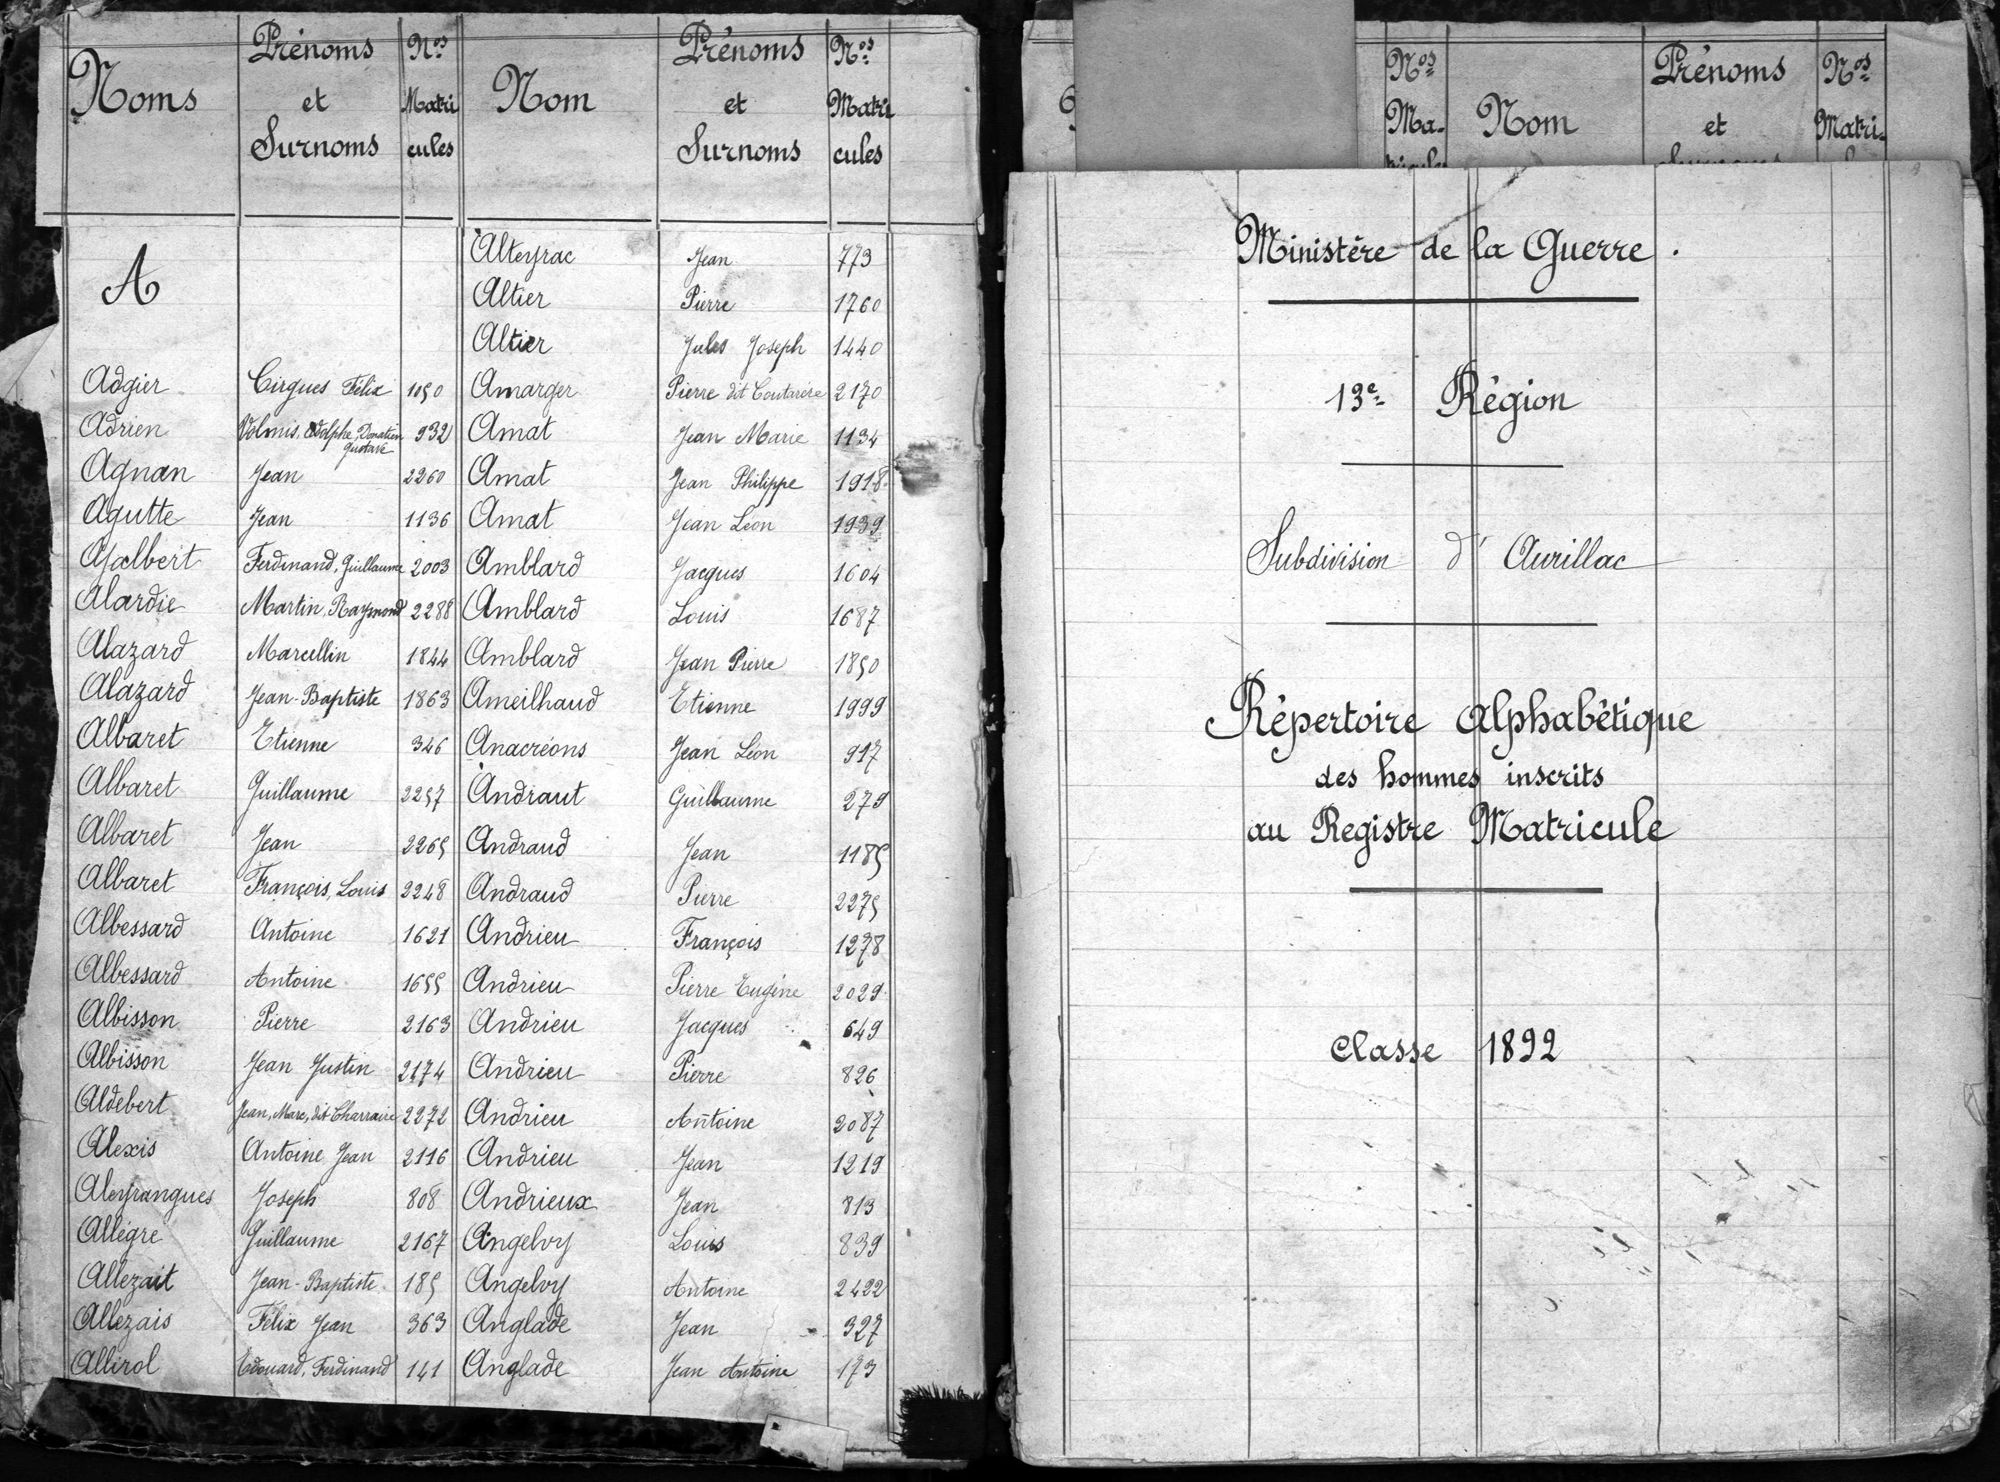 Noms Prénoms et Surnoms Nos Matricules Nom Prénoms et Surnoms Nos Matricules
A
Adgier Cirgues Félix 1050
Adrien Volmis, Adolphe, Donatien Gustave 932
Agnan Jean 2260
Agutte Jean 1136
Ajalbert Ferdinand, Guillaume 2003
Alardie Martin, Raymond 2288
Alazard Marcellin 1844
Alazard Jean-Baptiste 1863
Albaret Etienne 346
Albaret Guillaume 2257
Albaret Jean 2265
Albaret François, Louis 2248
Albessard Antoine 1621
Albessard Antoine 1655
Albisson Pierre 2163
Albisson Jean Justin 2174
Aldebert Jean, Marc, dit Charraire 2272
Alexis Antoine Jean 2116
Aleyrangues Joseph 808
Allègre Guillaume 2167
Allezait Jean-Baptiste 185
Allezais Félix Jean 363
Allirol Edouard, Ferdinand 141
Alteyrac Jean 773
Altier Pierre 1760
Altier Jules Joseph 1440
Amarger Pierre dit Coutarère 2170
Amat Jean Marie 1134
Amat Jean Philippe 1918
Amat Jean Léon 1939
Amblard Jacques 1604
Amblard Louis 1687
Amblard Jean Pierre 1850
Ameilhaud Etienne 1999
Anacréons Jean Léon 917
Andraut Guillaume 279
Andraud Jean 1185
Andraud Pierre 2275
Andrieu François 1278
Andrieu Pierre Eugène 2029
Andrieu Jacques 649
Andrieu Pierre 826
Andrieu Antoine 2087
Andrieu Jean 1219
Andrieux Jean 813
Angelvy Louis 839
Angelvy Antoine 2422
Anglade Jean 327
Anglade Jean Antoine 173
Nos Ma- Nom Prénoms et Nos Matri-
Ministère de la Guerre.
13e Région
Subdivision d'Aurillac
Répertoire Alphabétique
des hommes inscrits
au Registre Matricule
Classe 1892